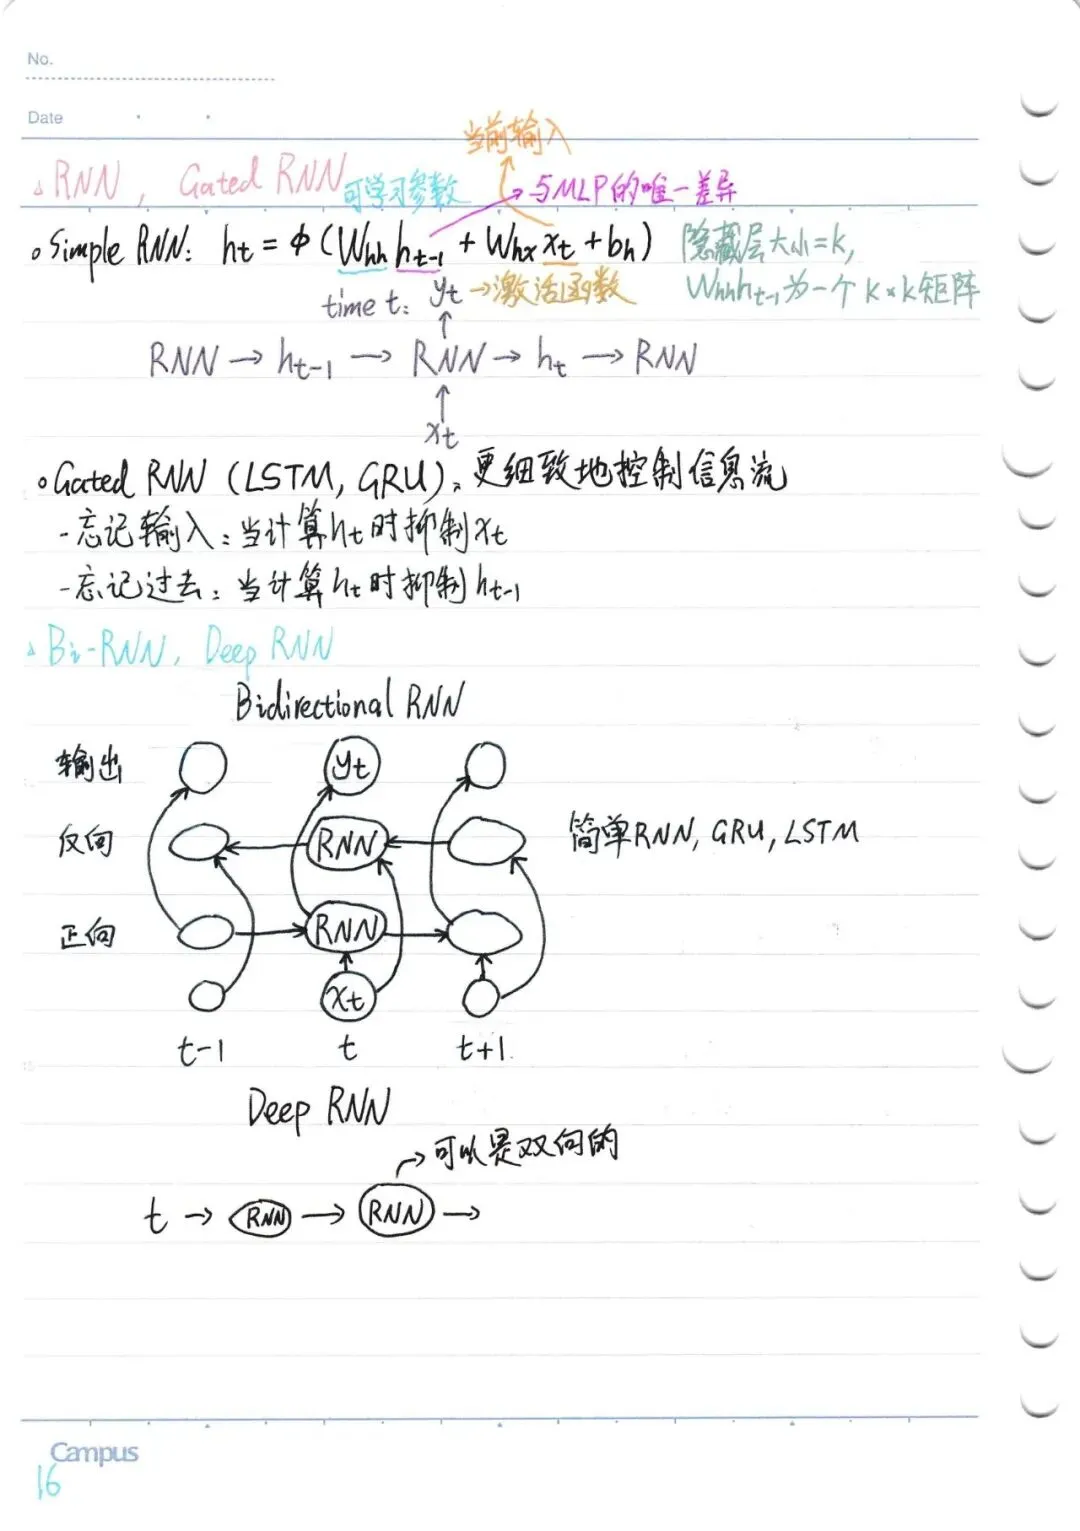 No.
Date
当前输入
△ RNN, Gated RNN 可学习参数 →与MLP的唯一差异
○ Simple RNN: ht = φ (Whh ht-1 + Whx xt + bh) 隐藏层大小=k,
time t: yt →激活函数 Whhht-1为一个 k×k矩阵
RNN → ht-1 → RNN → ht → RNN
xt
○ Gated RNN (LSTM, GRU): 更细致地控制信息流
-忘记输入:当计算ht时抑制xt
-忘记过去:当计算ht时抑制ht-1
△ Bi-RNN, Deep RNN
Bidirectional RNN
输出 yt
反向 RNN 简单RNN, GRU, LSTM
正向 RNN
xt
t-1 t t+1
Deep RNN
→可以是双向的
t → RNN → RNN →
Campus
16